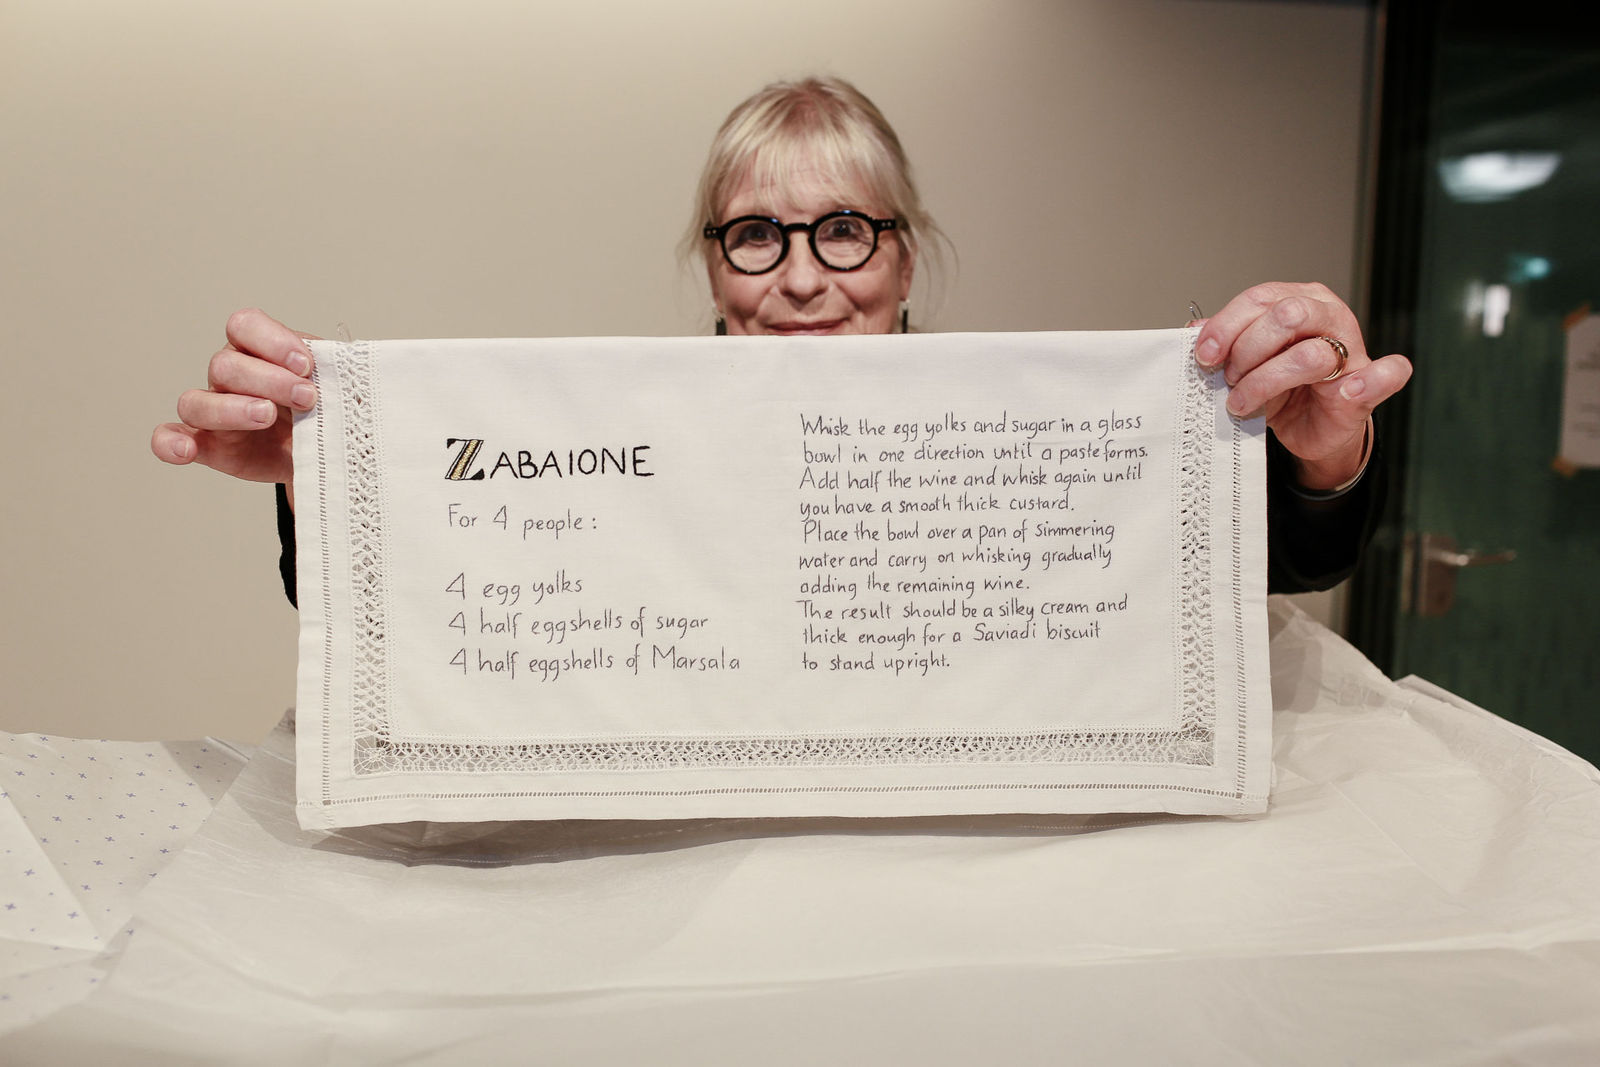 ZABAIONE
For 4 people :
4 egg yolks
4 half eggshells of sugar
4 half eggshells of Marsala
Whisk the egg yolks and sugar in a glass
bowl in one direction until a paste forms.
Add half the wine and whisk again until
you have a smooth thick custard.
Place the bowl over a pan of simmering
water and carry on whisking gradually
adding the remaining wine.
The result should be a silky cream and
thick enough for a Saviadi biscuit
to stand upright.